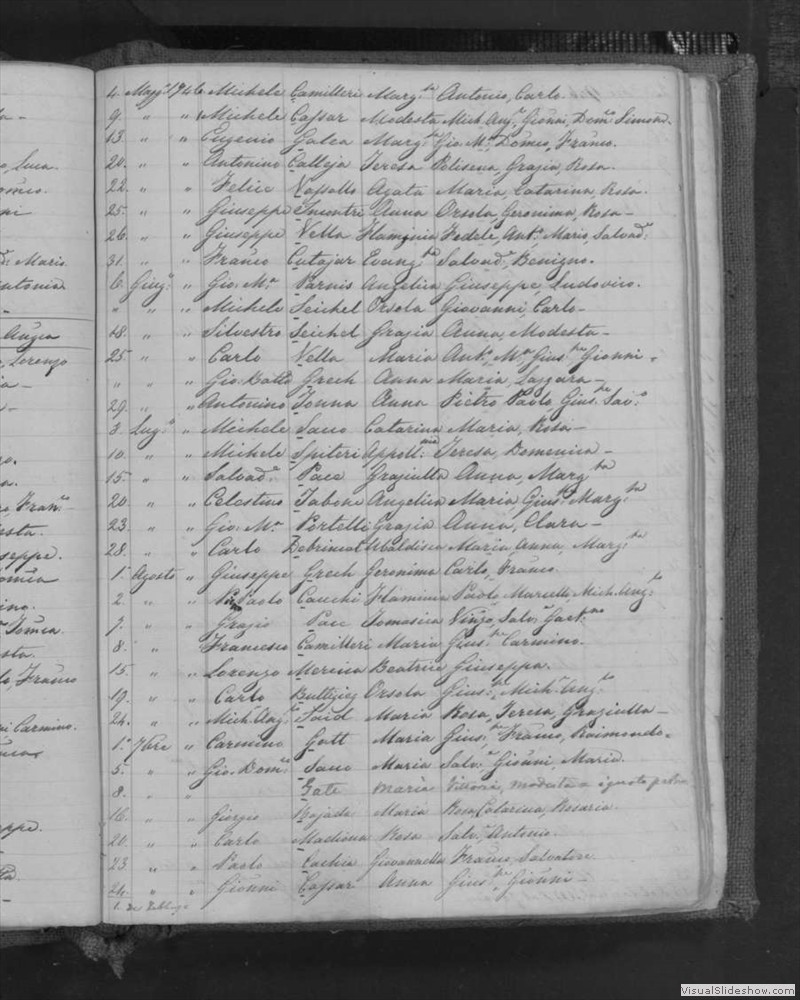 - 
, Luca.
omeo.
ni
d: Maria
ntonia
-
Angea
, Lorenzo
ia -
-
go.
a.
re, Fran:co
esta.
seppe.
omea
ino.
Tomea.
sta.
lo, Franco
ni Carmino.
ppe.
4. Magg: 1846 Michele Camilleri Marg:ta Antonio, Carlo.
9. " " Michele Cassar Modesta Mich. Ang: Gionni, Dom:co Simone.
13. " " Eugenio Galea Marg: Gio. M: Domeo, Franco.
20. " " Antonino Calleja Teresa Polisena, Grazia, Rosa.
22. " " Felice Vassallo Agata Maria, Catarina, Rosa.
25. " " Giuseppe Incontri Anna Orsola, Geronima, Rosa -
26. " " Giuseppe Vella Flaminia Fedele, Ant: Mario, Salvad:
31. " " Franco Cutajar Evang:ta Salvad:, Benigno.
6. Giug: " Gio. M: Parnis Angelica Giuseppe, Ludovico.
" " " Michele Seichel Orsola Giovanni, Carlo -
18. " " Silvestro Seichel Grazia Anna, Modesta -
25 " " Carlo Vella Maria Ant: M: Gius: Gionni.
" " " Gio: Batta Grech Anna Maria, Lazzara -
29. " " Antonino Tonna Anna Pietro Paolo Gius: Sal:
3. Lug: " Michele Sacco Catarina Maria, Rosa -
10. " " Michele Spiteri Appoll:nia Teresa, Domenica -
15. " " Salvad: Pace Graziulla Anna, Marg:ta
20. " " Celestino Tabone Angelica Maria, Gius: Marg:ta
23. " " Gio: M: Portelli Grazia Anna, Clara -
28. " " Carlo Debrincat Ubaldisca Maria, Anna, Marg:ta
1. Agosto " Giuseppe Grech Geronima Carlo, Franco.
2. " " Paolo Cauchi Flaminia Paolo Marcell: Mich. Ang:
7. " " Grazio Pace Tomasica Vinzo, Salv: Gaet:no
8. " " Francesco Camilleri Maria Gius: Carmino.
15. " " Lorenzo Mercica Beatrice Giuseppa.
19. " " Carlo Buttigieg Orsola Gius:, Mich. Ang:
24. " " Mich. Ang: Said Maria Rosa, Teresa, Graziulla -
1. 7bre " Carmino Gatt Maria Gius:, Franco, Raimondo.
5. " " Gio: Dom:co Sacco Maria Salv: Gionni, Mario.
8. " Gate Maria Vittoria, Modesta a ignoto patre
16. " " Giorgio Maria Rosa, Catarina, Rosaria.
20. " " Carlo Madiona Rosa Salv: Antonio.
23 " " Paolo Cachia Giovannella Franco, Salvatore.
24. " " Gionni Cassar Anna Gius: Gionni -
VisualSlideshow.com